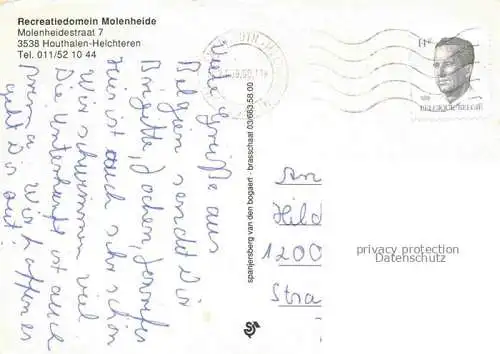 Recreatiedomein Molenheide
Molenheidestraat 7
3538 Houthalen-Helchteren
Tel. 011/52 10 44
Viele Grüße aus
Belgien sendet Dir
Brigitte, Jochen, Jennifer
Hier ist auch sehr schön
Wir schwimmen viel
Die Unterkunft ist auch
prima. Wir hoffen es
geht Dir gut!
spanjersberg van den bogaert - brasschaat 03/663.58.00
14F
BELGIQUE-BELGIË
An
Hild
1200
Stra
privacy protection
Datenschutz